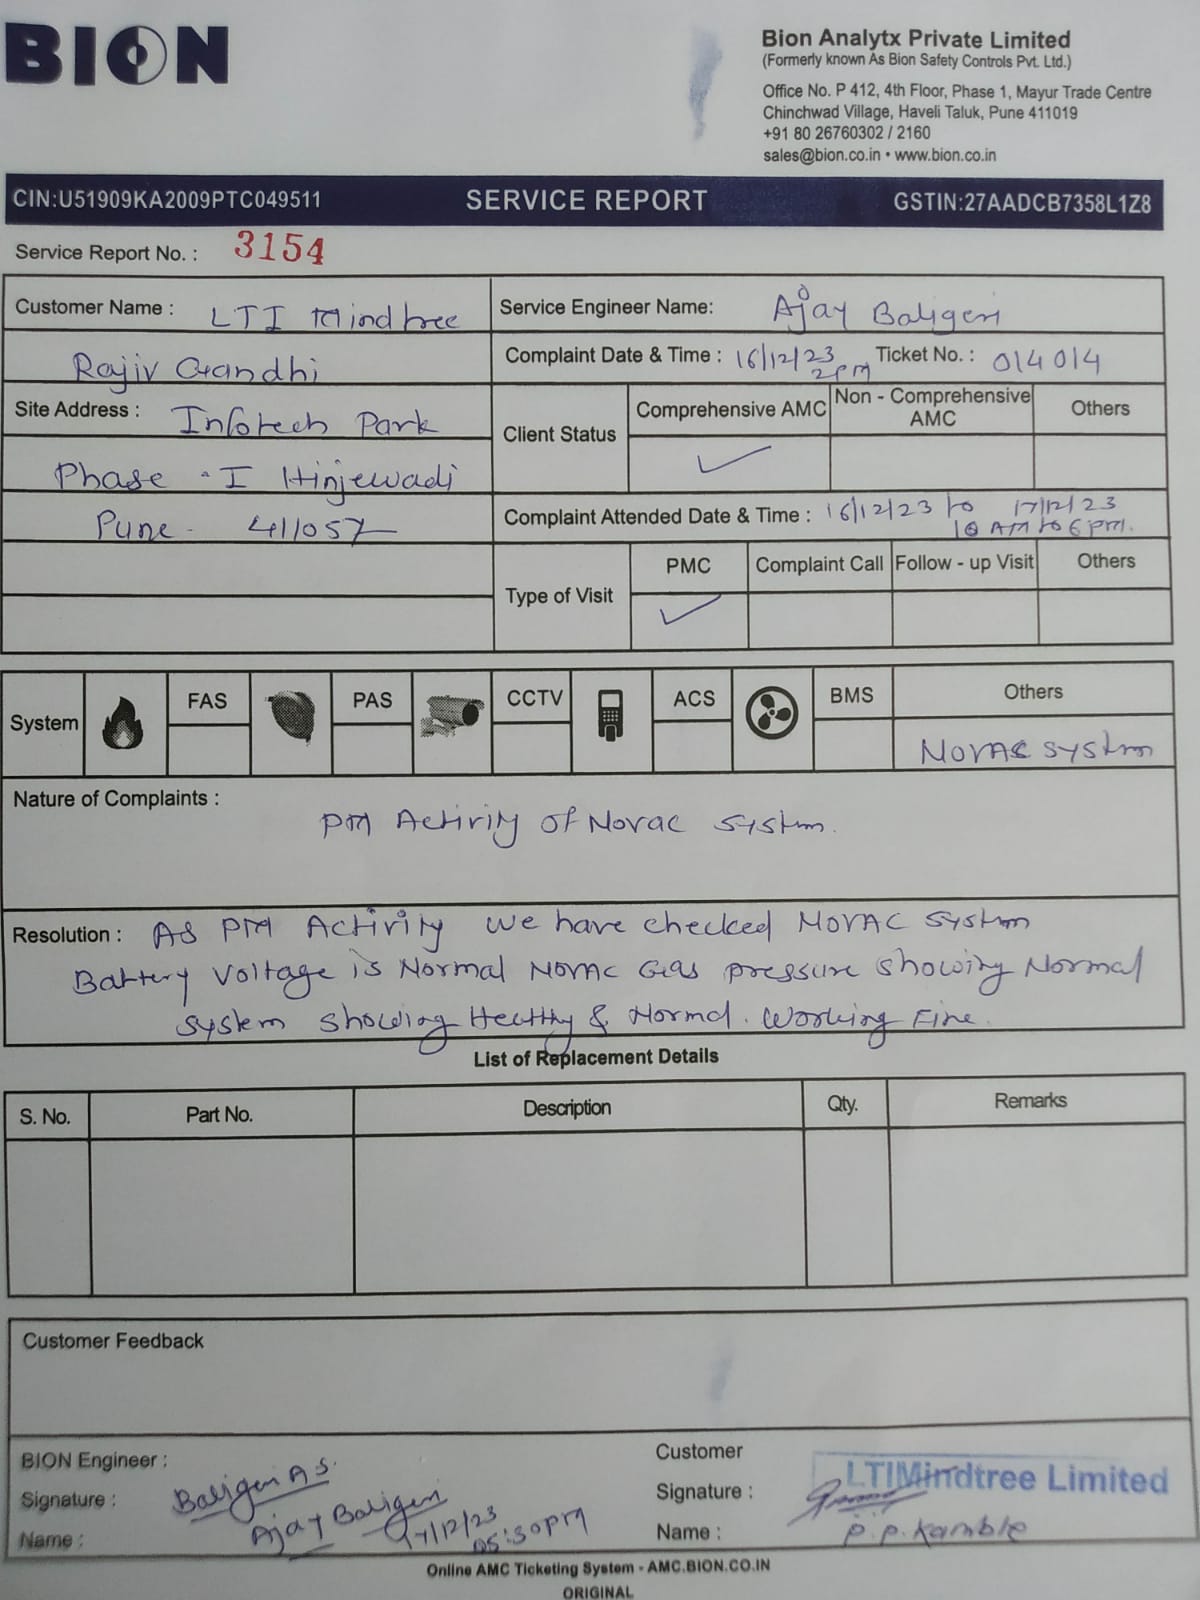 BION
Bion Analytx Private Limited
(Formerly known As Bion Safety Controls Pvt. Ltd.)
Office No. P 412, 4th Floor, Phase 1, Mayur Trade Centre
Chinchwad Village, Haveli Taluk, Pune 411019
+91 80 26760302 / 2160
sales@bion.co.in • www.bion.co.in
CIN:U51909KA2009PTC049511 SERVICE REPORT GSTIN:27AADCB7358L1Z8
Service Report No. : 3154
Customer Name : LTI Mindtree
Rajiv Gandhi
Site Address : Infotech Park
Phase - I Hinjewadi
Pune - 411057
Service Engineer Name: Ajay Baligeri
Complaint Date & Time : 16/12/23 2PM Ticket No. : 014014
Client Status Comprehensive AMC Non - Comprehensive AMC Others
✓
Complaint Attended Date & Time : 16/12/23 to 17/12/23
10 AM to 6 PM.
Type of Visit PMC Complaint Call Follow - up Visit Others
✓
System FAS PAS CCTV ACS BMS Others
NOVAC System
Nature of Complaints :
PM Activity of Novac System.
Resolution : AS PM Activity we have checked NOVAC System
Battery Voltage is Normal NOVAC Gas pressure showing Normal
system showing Healthy & Normal. Working Fine.
List of Replacement Details
S. No. Part No. Description Qty. Remarks
Customer Feedback
BION Engineer :
Signature : Baligeri A S.
Name : Ajay Baligeri
17/12/23
05:30PM
Customer
LTIMindtree Limited
Signature :
Name : P.P. Kamble
Online AMC Ticketing System - AMC.BION.CO.IN
ORIGINAL